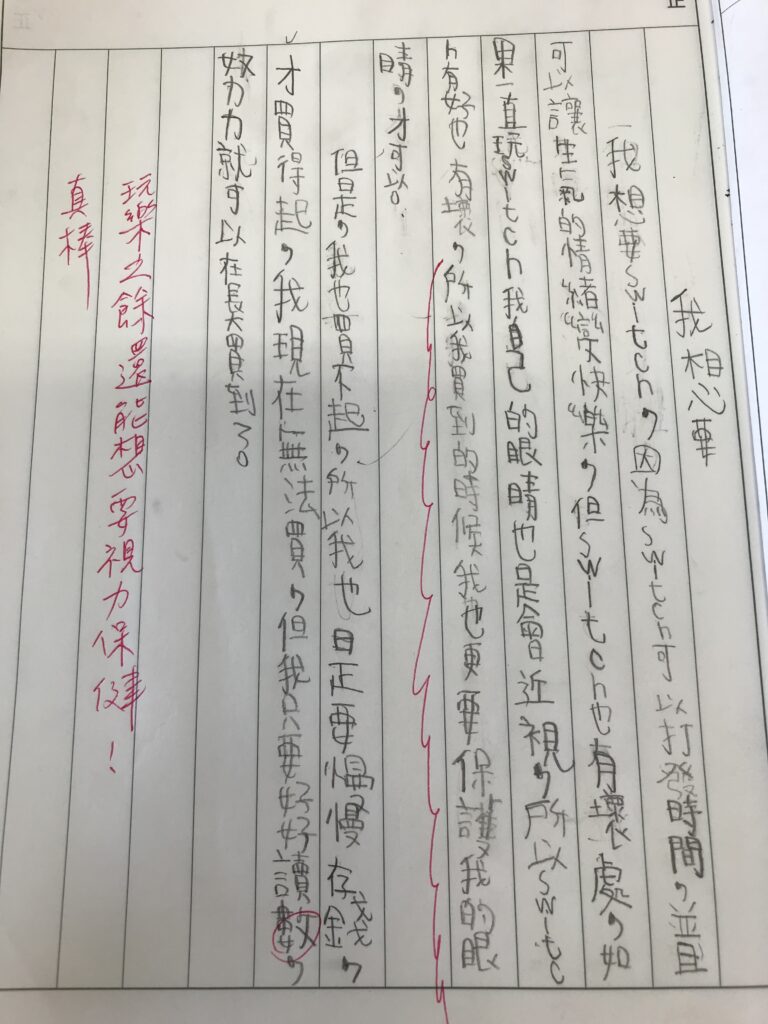 我想要
我想要switch，因為switch可以打發時間，並且
可以讓生氣的情緒變快樂，但switch也有壞處，如
果一直玩switch我自己的眼睛也是會近視，所以switc
h有好也有壞，所以我買到的時候我也更要保護我的眼
睛，才可以。
但是，我也買不起，所以我也日正要慢慢存錢，
才買得起，我現在無法買，但我只要好好讀數，
努力就可以在長大買到了。
玩樂之餘還能想要視力保健！
真棒